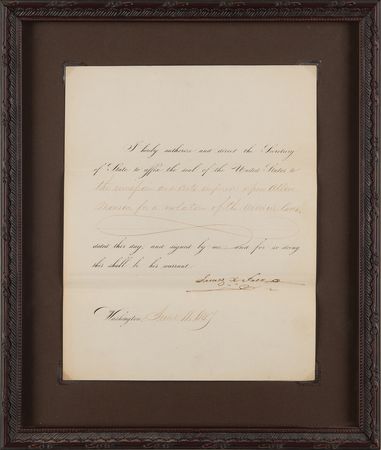 I hereby authorize and direct the Secretary
of State to affix the seal of the United States to
the remission and
for a violation of the revenue laws,
dated this day, and signed by me and for so doing
this shall be his warrant.
James K. Polk
Washington, June 11, 1847